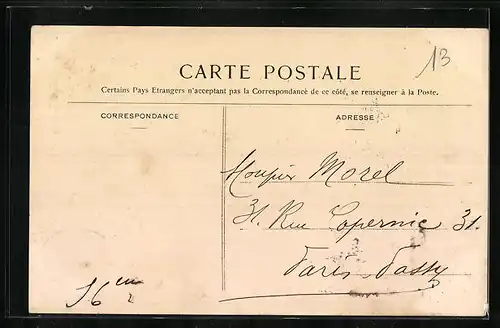 13
CARTE POSTALE
Certains Pays Etrangers n'acceptant pas la Correspondance de ce côté, se renseigner à la Poste.
CORRESPONDANCE
ADRESSE
Morel
31. Rue Copernic 31.
Paris-Passy